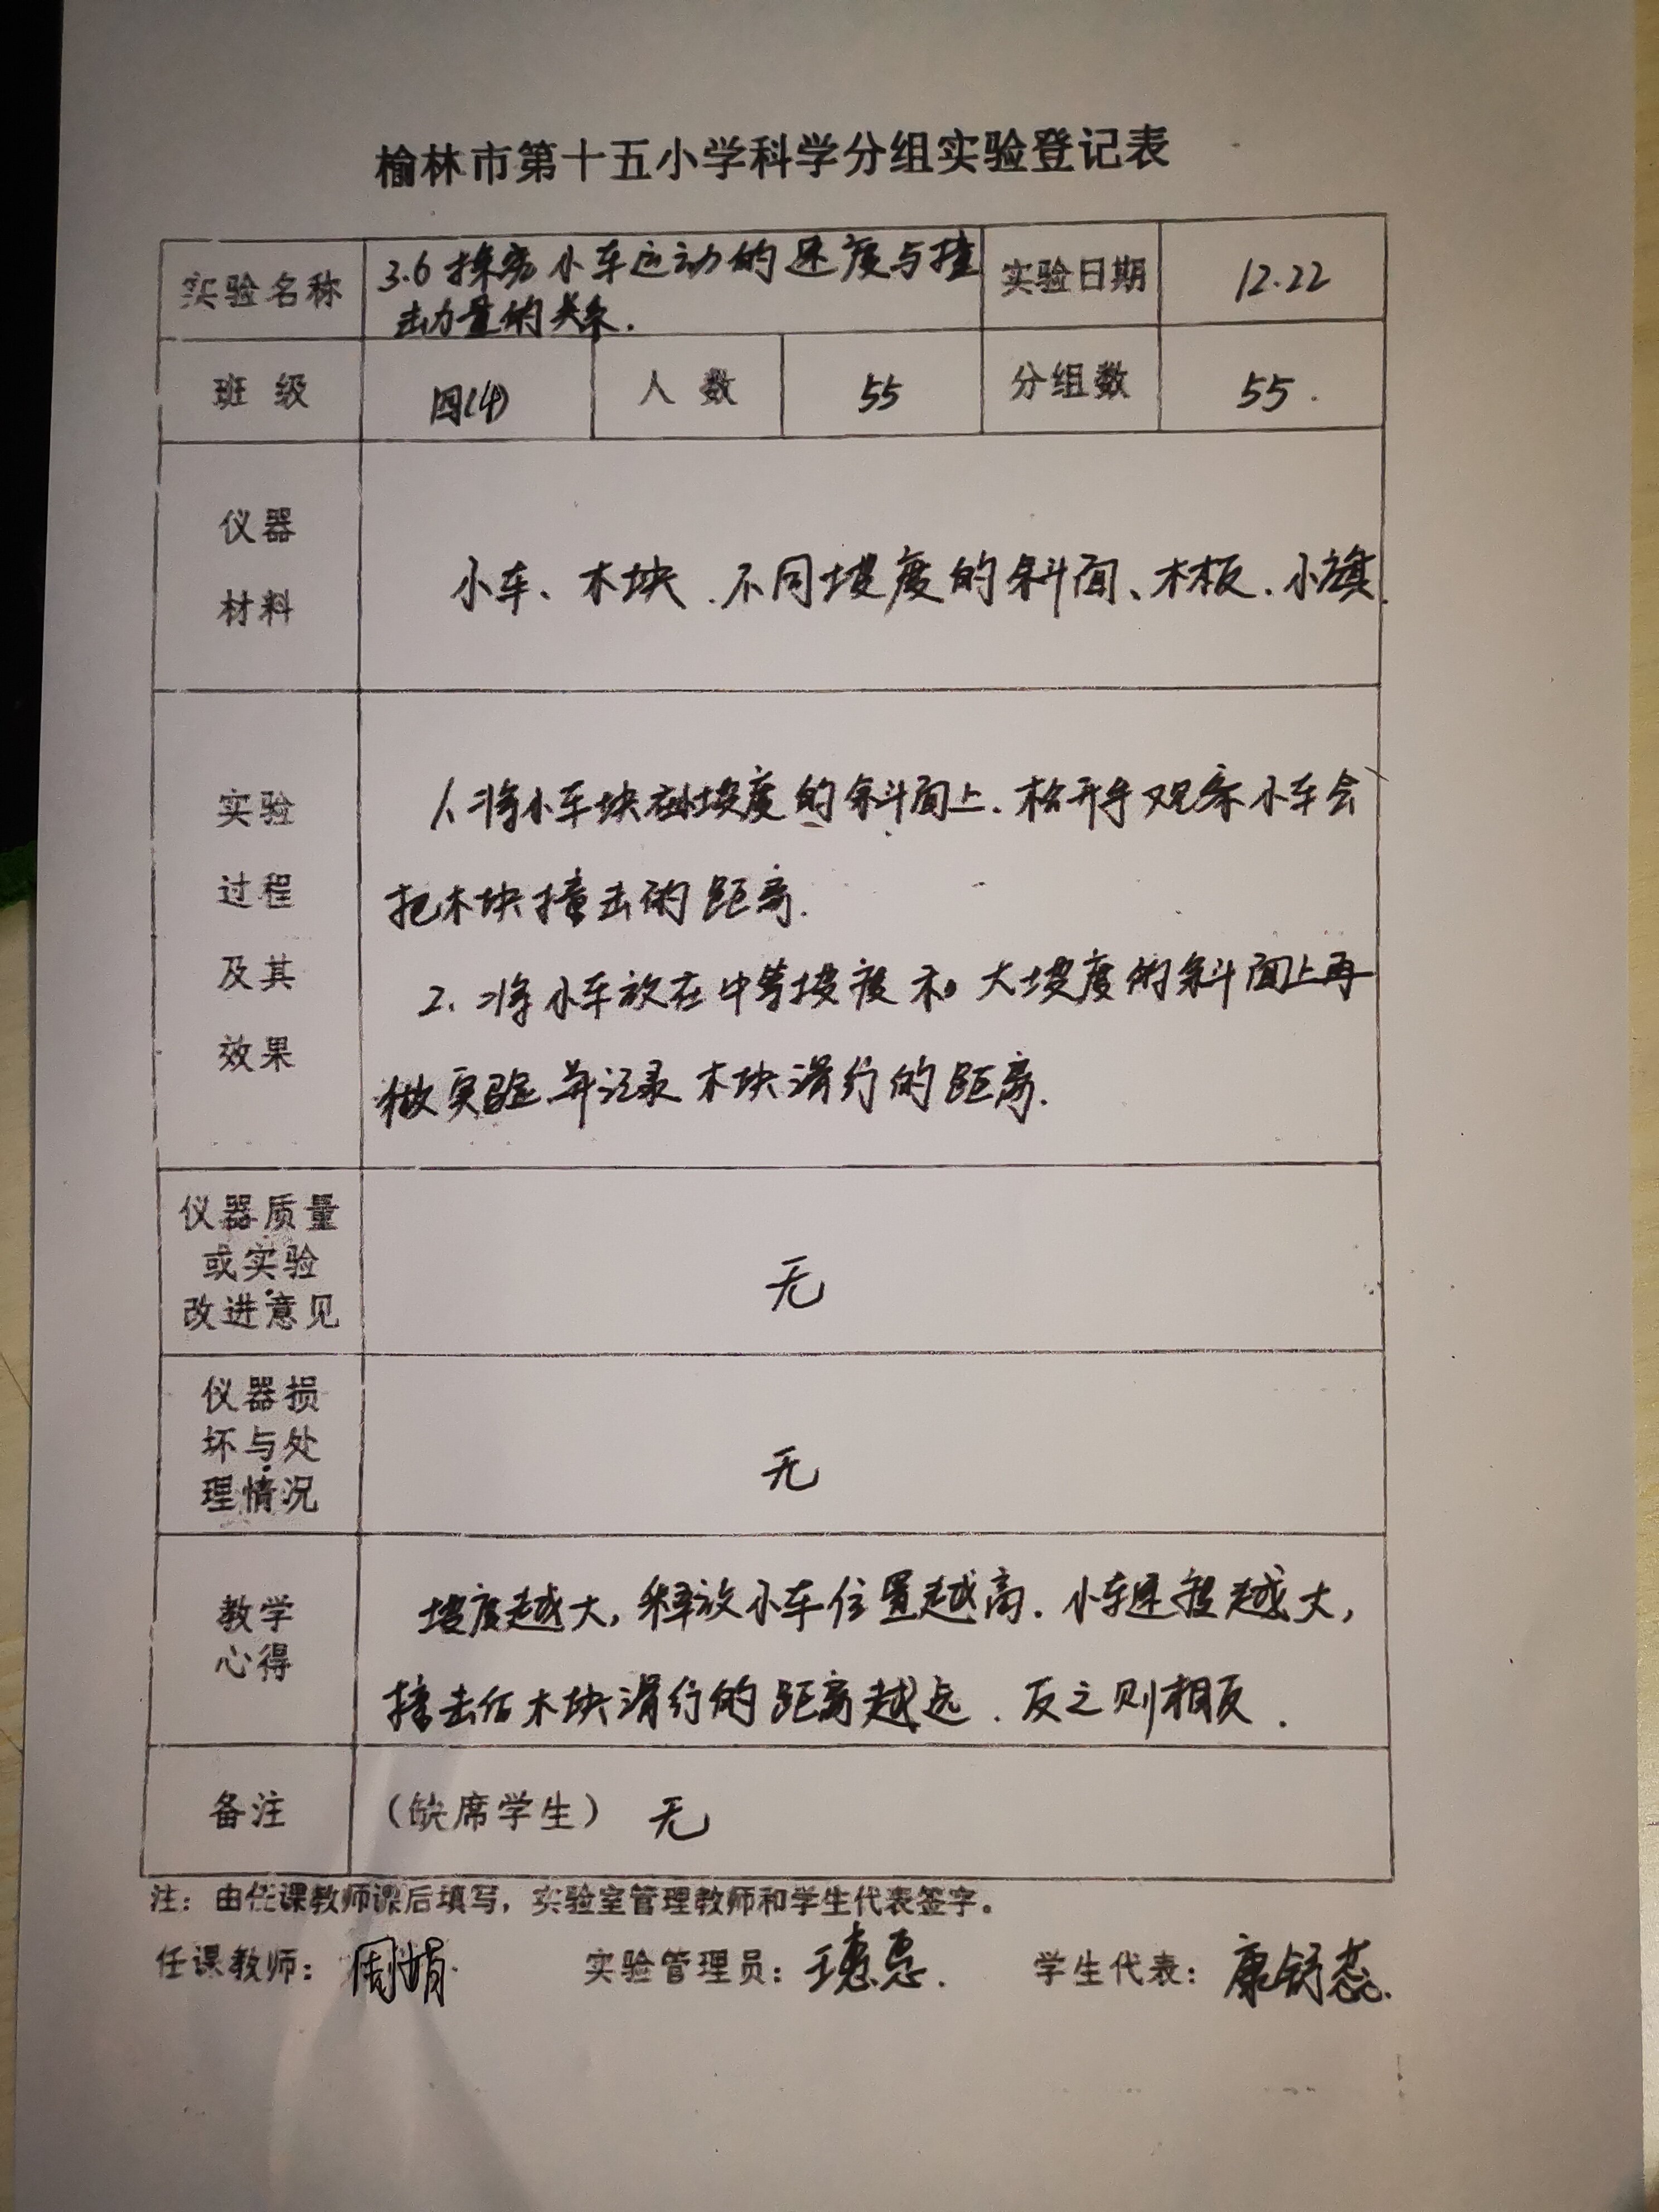 榆林市第十五小学科学分组实验登记表
实验名称
3.6 探究小车运动的速度与撞
击力量的关系.
实验日期
12.22
班 级
四(4)
人 数
55
分组数
55.
仪器
材料
小车、木块.不同坡度的斜面、木板.小旗.
实验
过程
及其
效果
1.将小车块在小坡度的斜面上.松开手观察小车会
把木块撞击的距离.
2.将小车放在中等坡度和大坡度的斜面上再
做实验.并记录木块滑行的距离.
仪器质量
或实验
改进意见
无
仪器损
坏与处
理情况
无
教学
心得
坡度越大,释放小车位置越高.小车速度越大,
撞击后木块滑行的距离越远.反之则相反.
备注
（缺席学生） 无
注：由任课教师课后填写，实验室管理教师和学生代表签字。
任课教师：周娟. 实验管理员： 学生代表：康舒蕊.